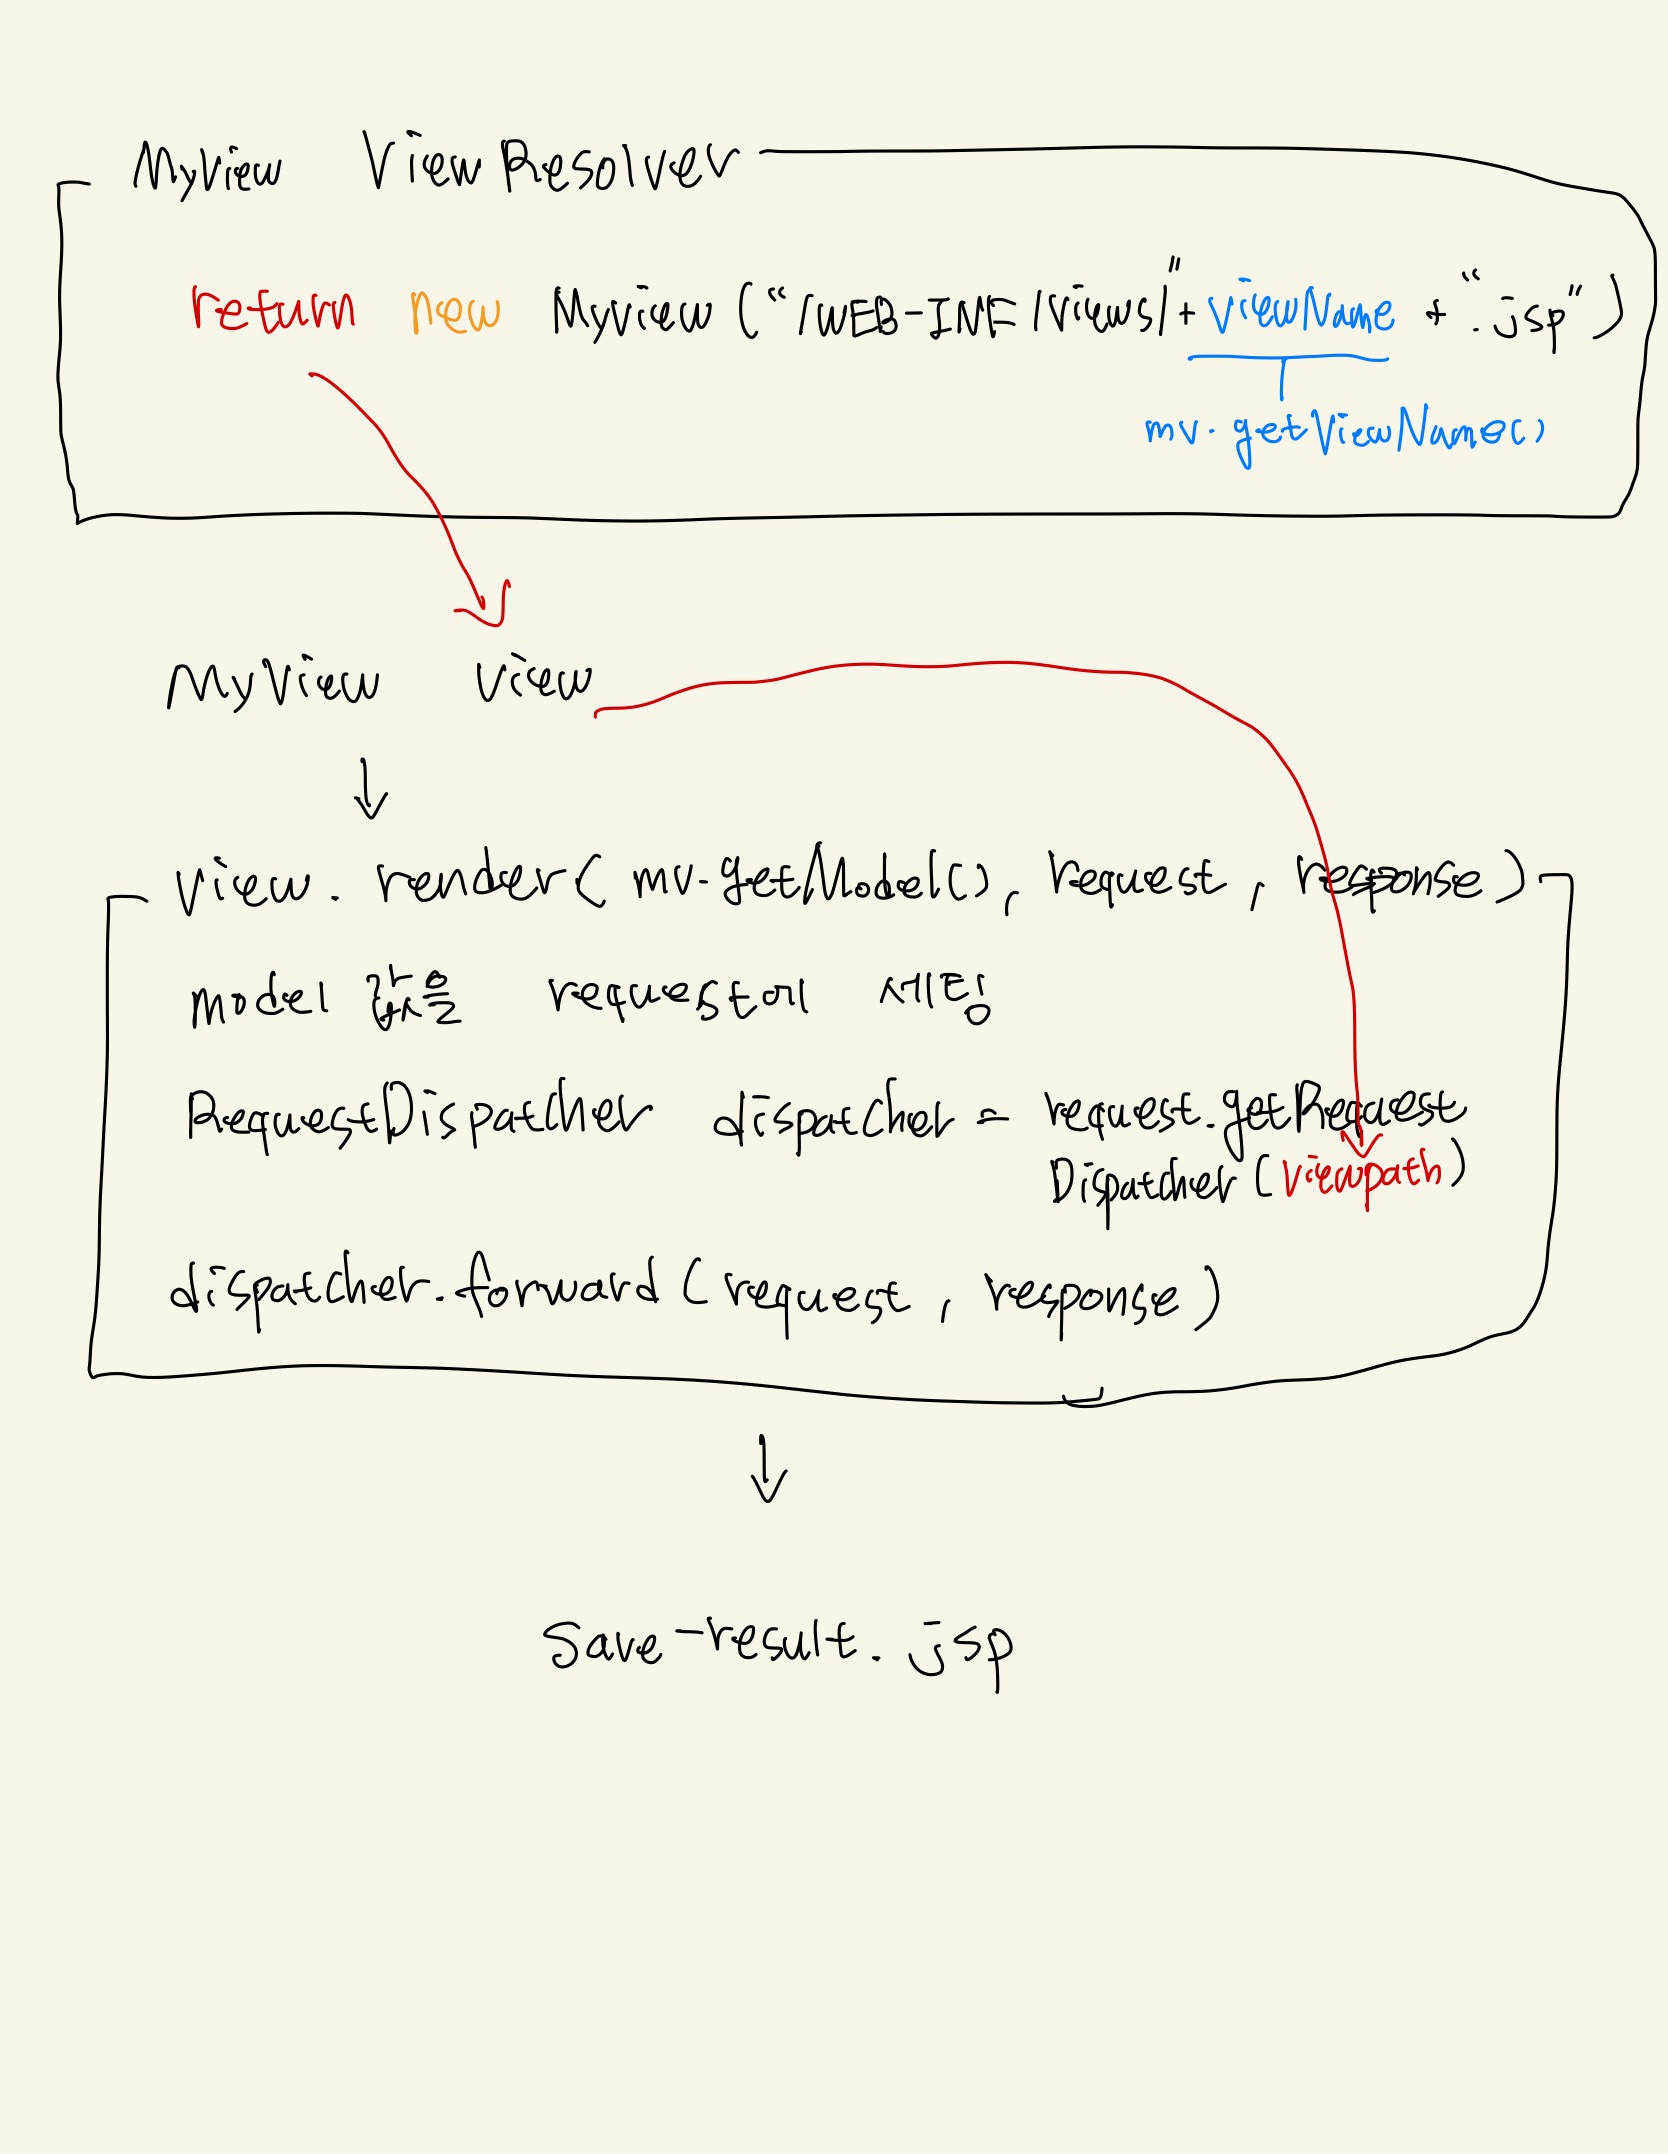 MyView ViewResolver
return new MyView ("/WEB-INF/views/" + viewName + ".jsp")
mv.getViewName()
MyView view
view.render( mv.getModel(), request, response)
model 값을 request에 세팅
RequestDispatcher dispatcher = request.getRequest
Dispatcher (viewpath)
dispatcher.forward (request, response)
Save-result.jsp